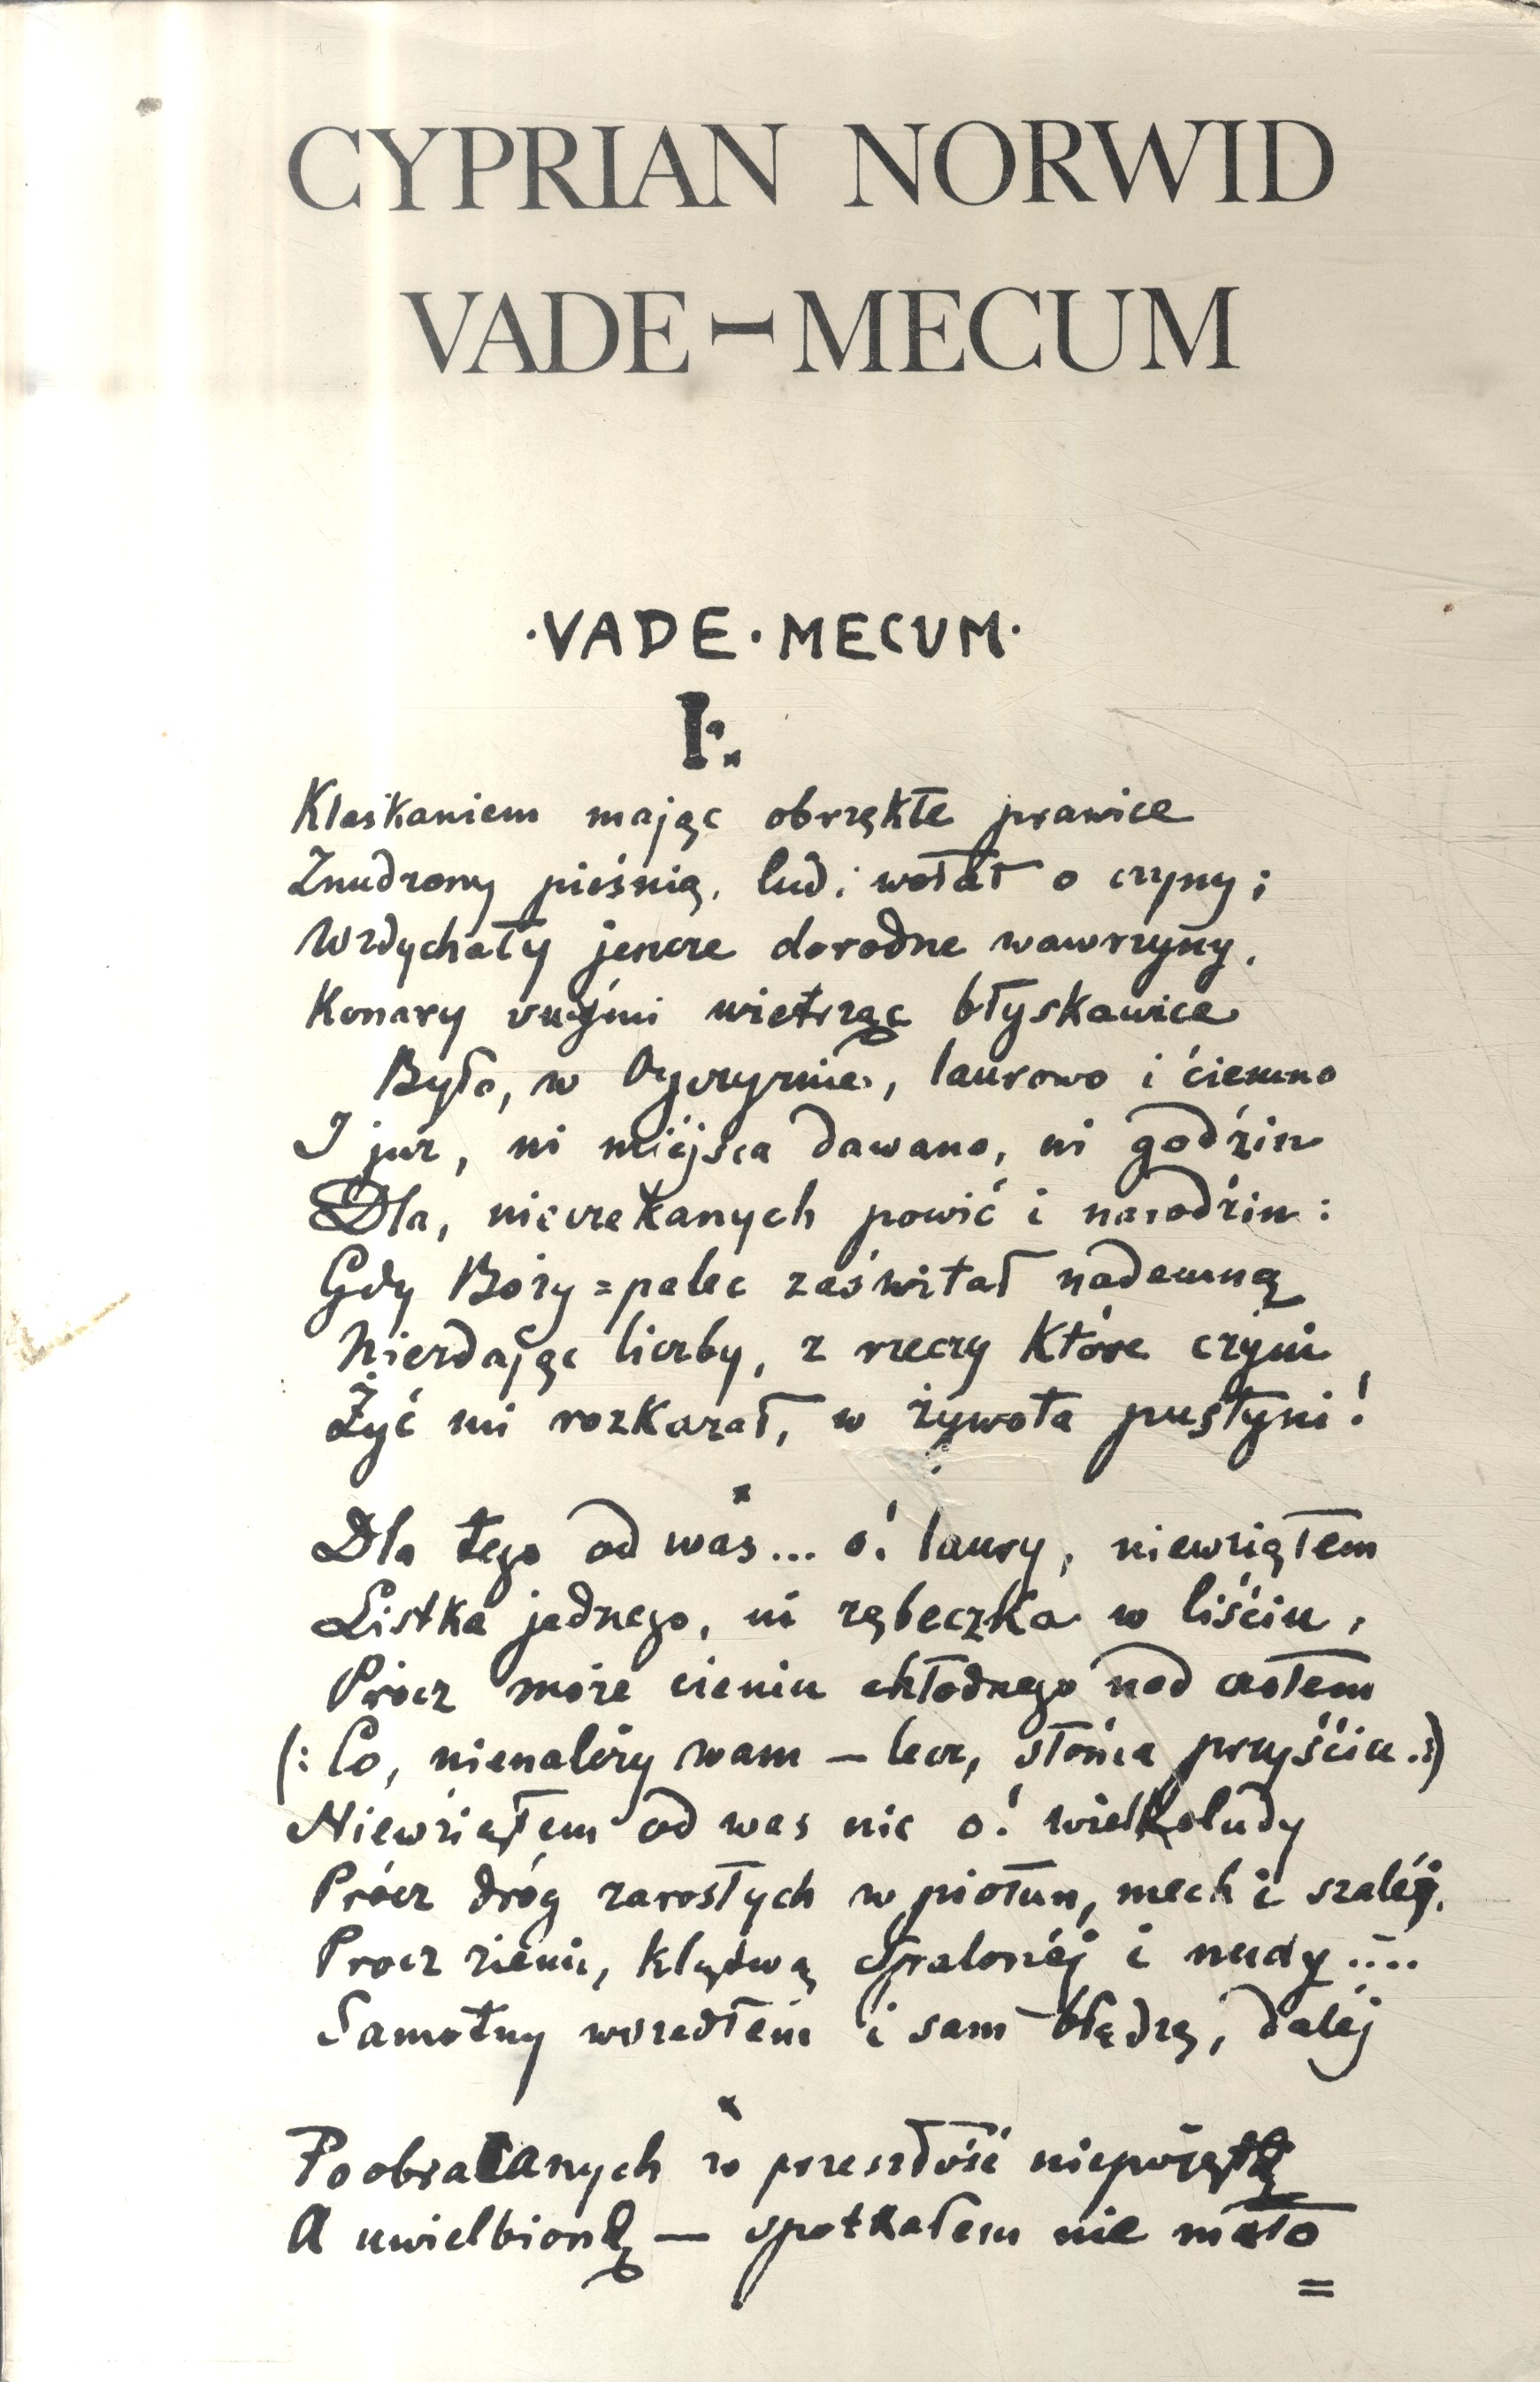 CYPRIAN NORWID
VADE-MECUM
·VADE·MECUM·
I.
Klaskaniem mając obrzękłe prawice
Znudzony pieśnią, lud, wołał o czyny;
Wzdychały jeszcze dorodne wawrzyny,
Konary swymi wietrząc błyskawice
Było, w Ojczyznie, laurowo i ćiemno
I już, ni miejsca dawano, ni godźin
Dla, nieczekanych powić i narodźin:
Gdy Boży=palec zaświtał nademną
Niezdając liczby, z rzeczy które czyni
Żyć mi rozkazał, w żywota pustyni!
Dla tego od was... o! laury, niewziąłem
Listka jednego, ni ząbeczka w liśćiu,
Prócz może cieniu chłodnego nad czołem
(: Co, nienależy wam — lecz, słońca przyśćiu.:)
Niewziąłem od was nic o! wielkoludy
Prócz dróg zarosłych w piołun, mech i szaléj,
Prócz ziemi, klątwą spalonéj i nudy....
Samotny wszedłem i sam błądzę, daléj
Poobracanych w przeszłość niepojętą
A uwielbioną — spotkałem nie mało
=